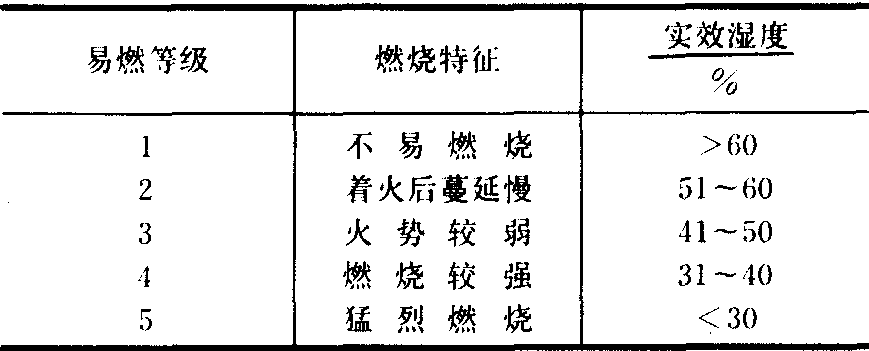 易燃等级 燃烧特征 实效湿度
%
1 不易燃烧 >60
2 着火后蔓延慢 51~60
3 火势较弱 41~50
4 燃烧较强 31~40
5 猛烈燃烧 <30